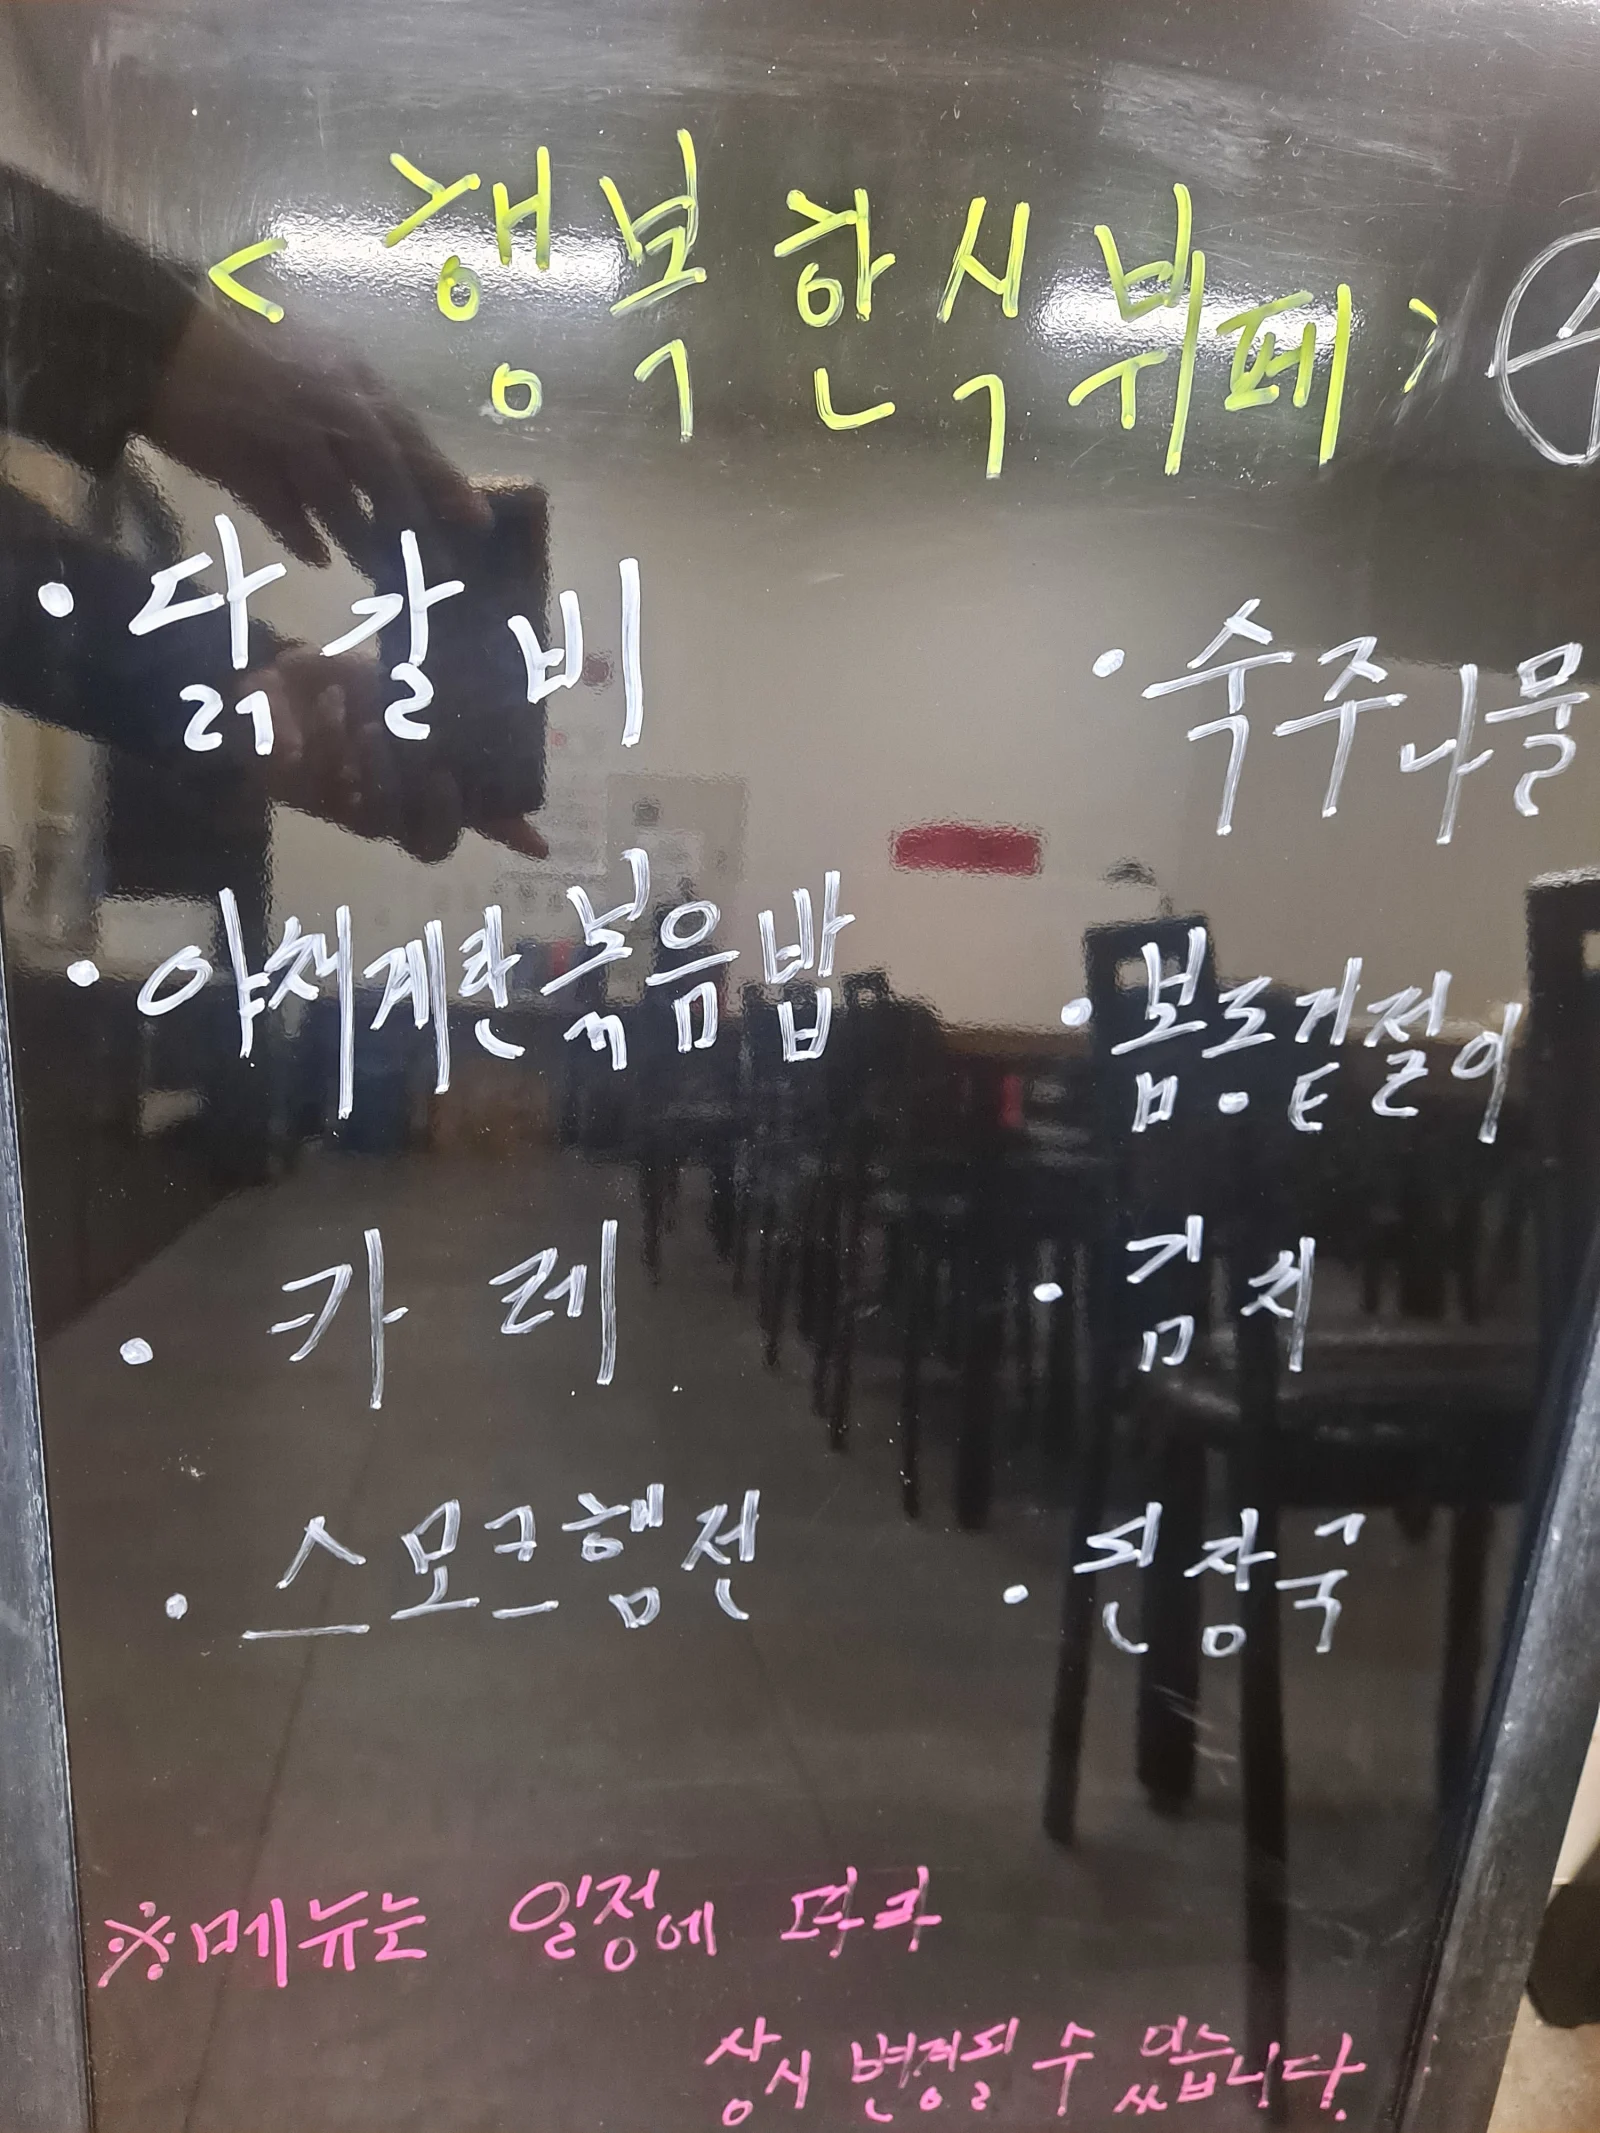 <행복한식뷔페>
· 닭갈비
· 숙주나물
· 야채계란볶음밥
· 봄동겉절이
· 카레
· 김치
· 스모크햄전
· 된장국
※메뉴는 일정에 따라
상시 변경될 수 있습니다.